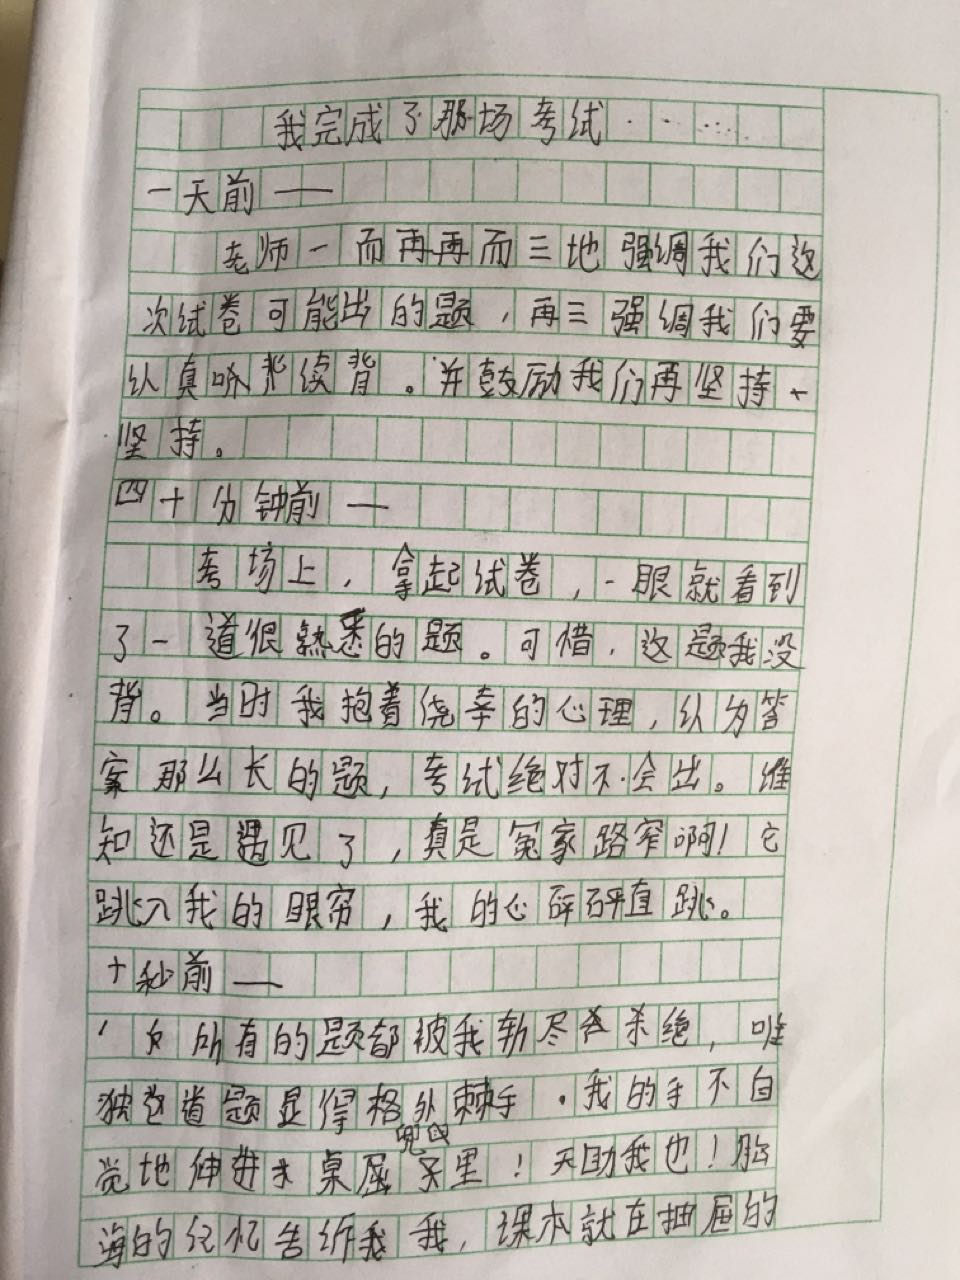 我完成了那场考试······
一天前——
老师一而再再而三地强调我们这
次试卷可能出的题，再三强调我们要
认真听 续背。并鼓励我们再坚持一
坚持。
四十分钟前—
考场上，拿起试卷，一眼就看到
了一道很熟悉的题。可惜，这题我没
背。当时我抱着侥幸的心理，认为答
案那么长的题，考试绝对不会出。谁
知还是遇见了，真是冤家路窄啊！它
跳入我的眼帘，我的心砰砰直跳。
十秒前——
所有的题都被我斩尽杀绝，唯
独这道题显得格外棘手。我的手不自
觉地伸进桌屉里！天助我也！脑
海的记忆告诉我，课本就在抽屉的